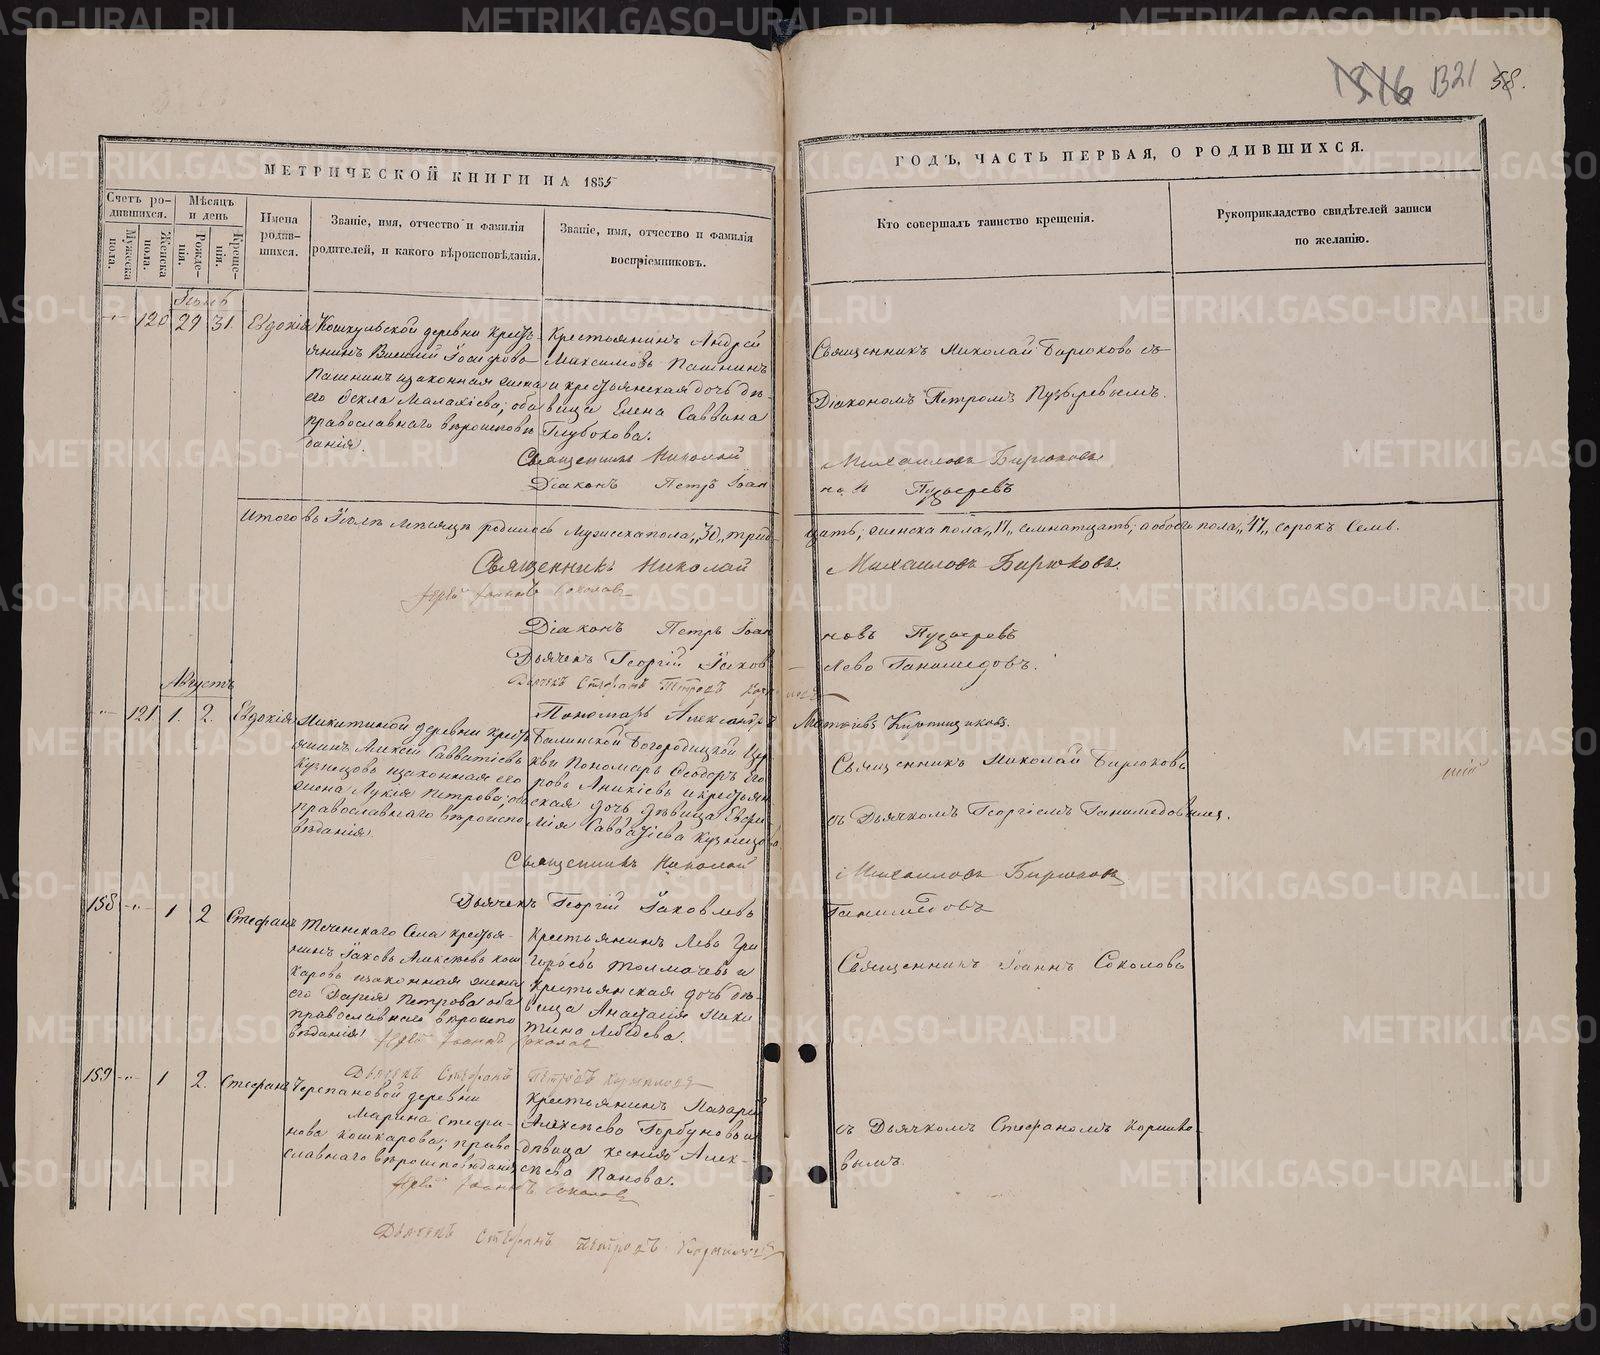 В21 58.
МЕТРИЧЕСКОЙ КНИГИ НА 1855
ГОДЪ, ЧАСТЬ ПЕРВАЯ, О РОДИВШИХСЯ.
Счетъ ро-
дившихся.
Мужеска пола.
Женска пола.
Мѣсяцъ
и день
Рожде-
нія.
Креще-
нія.
Имена
родив-
шихся.
Званіе, имя, отчество и фамилія
родителей, и какого вѣроисповѣданія.
Званіе, имя, отчество и фамилія
воспріемниковъ.
Кто совершалъ таинство крещенія.
Рукоприкладство свидѣтелей записи
по желанію.
120 29 31. Евдокія
деревни кресть
янинъ Василій Іосифовъ
Пашнинъ и законная жена
его Ѳекла Малахіева; оба
православнаго вѣроисповѣ
данія.
Крестьянинъ Андрей
Максимовъ Пашнинъ
и крестьянская дочь дѣ-
вица Елена Саввина
Глубокова.
Священникъ Николай Бирюковъ съ
Діакономъ Петромъ Пузыревымъ.
Священникъ Николай Михаиловъ Бирюковъ
Діаконъ Петръ Іоанновъ Пузыревъ
Итого въ Іюлѣ Мѣсяцѣ родилось Мужеска пола „30„ трид-
цать; женска пола „17„ семнатцать; а обоего пола „47„ сорокъ семь.
Священникъ Николай Михаиловъ Бирюковъ.
Іерей Іоаннъ Соколовъ
Діаконъ Петръ Іоанновъ Пузыревъ
Дьячекъ Георгій Іаковлевъ Ганимедовъ.
Дьячекъ Стефанъ Петровъ
Пономарь Александръ Матвіевъ
Августъ
121 1. 2. Евдокія
Никитиной деревни кресть
янинъ Алексій Савватіевъ
Кузнецовъ и законная его
жена Лукія Петрова; оба
православнаго вѣроиспо
вѣданія.
Богородицкой Цер
кви Пономарь Ѳеодоръ Его
ровъ Аникіевъ и крестьян
ская дочь дѣвица Евфи
мія Савватіева Кузнецова
Священникъ Николай Бирюковъ
съ Дьячкомъ Георгіемъ Ганимедовымъ.
Священникъ Николай Михаиловъ Бирюковъ
Дьячекъ Георгій Іаковлевъ Ганимедовъ
158 1 2 Стефанъ
Теченскаго Села крестья-
нинъ Іаковъ Алексѣевъ Кош
каровъ и законная жена
его Дарія Петрова оба
православнаго вѣроиспо
вѣданія.
Крестьянинъ Левъ Гри
горьевъ Толмачевъ и
крестьянская дочь дѣ-
вица Анастасія Ники
тина Лебедева.
Священникъ Іоаннъ Соколовъ
Іерей Іоаннъ Соколовъ
Дьячекъ Стефанъ Петровъ
159 1 2. Стефанъ
Черепановой деревни
Марина Стефа-
нова Кошкарова; право
славнаго вѣроисповѣданія
Крестьянинъ Макарій
Алексѣевъ Горбуновъ и
дѣвица Ксенія Алек-
сѣева Панова.
съ Дьячкомъ Стефаномъ
вымъ.
Іерей Іоаннъ Соколовъ
Дьячекъ Стефанъ Петровъ
METRIKI.GASO-URAL.RU